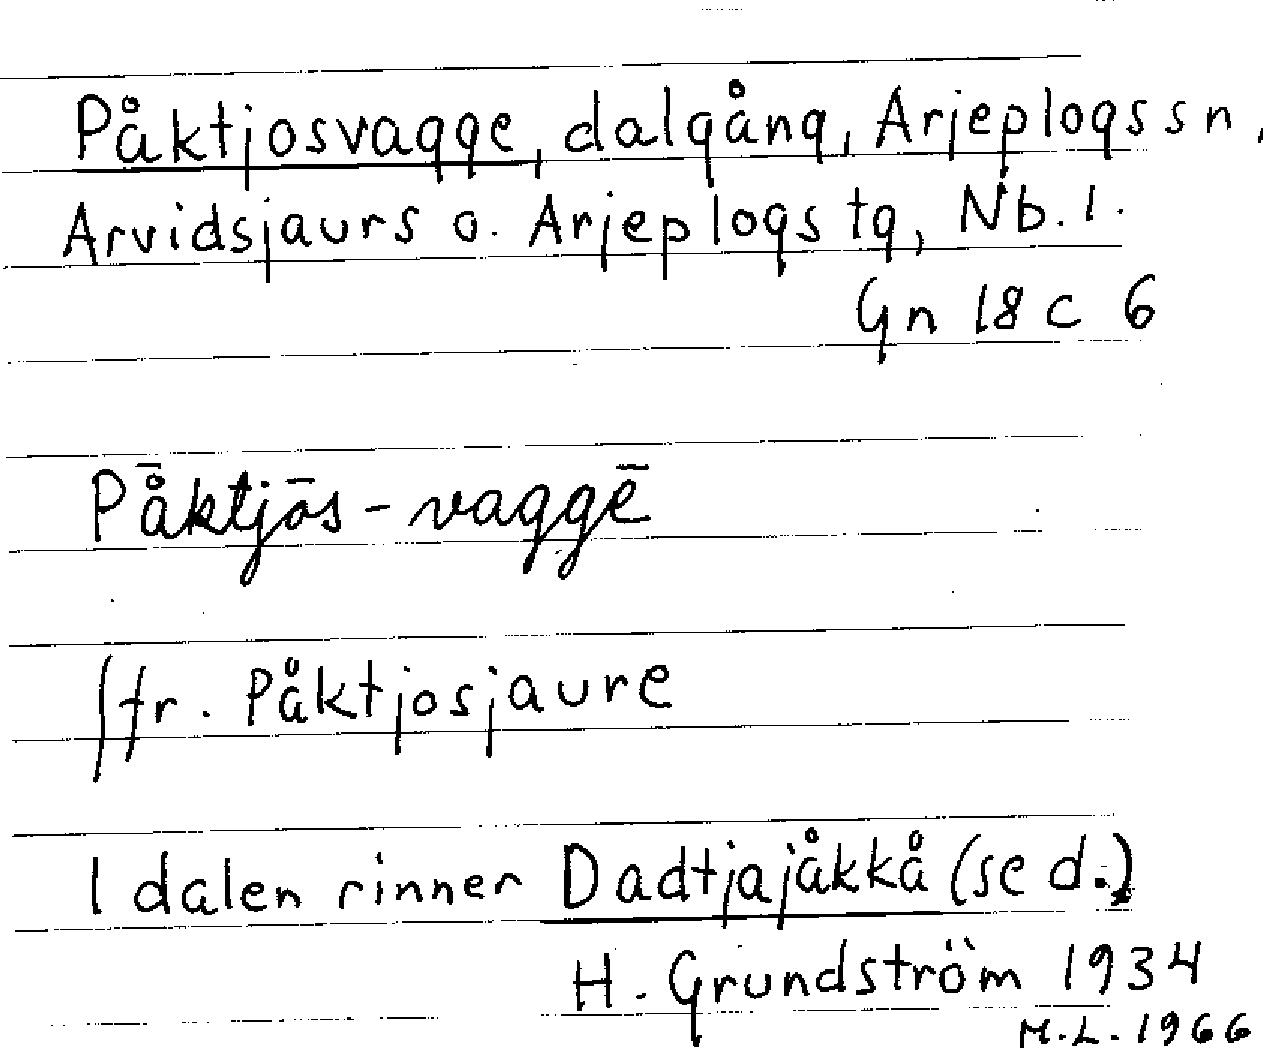 Påktjosvagge, dalgång, Arjeplogs sn,
Arvidsjaurs o. Arjeplogs tg, Nb. l.
Gn 18 c 6
På̄ktjōs-vaggē
/fr. Påktjosjaure
I dalen rinner Dadtjajåkkå (se d.)
H. Grundström 1934
M.L. 1966